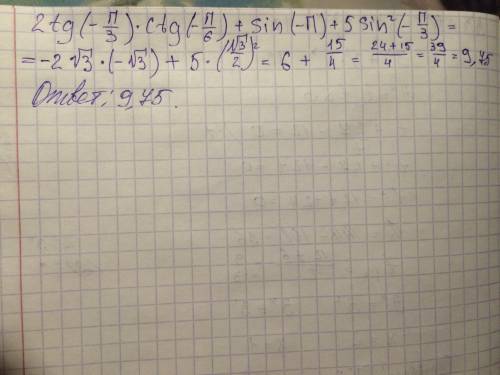 2tg(-π/3)·ctg(-π/6)+sin(-π)+5sin²(-π/3)=
=-2√3·(-√3)+5·(√3/2)²=6+15/4=24+15/4=39/4=9,75
Ответ: 9,75.